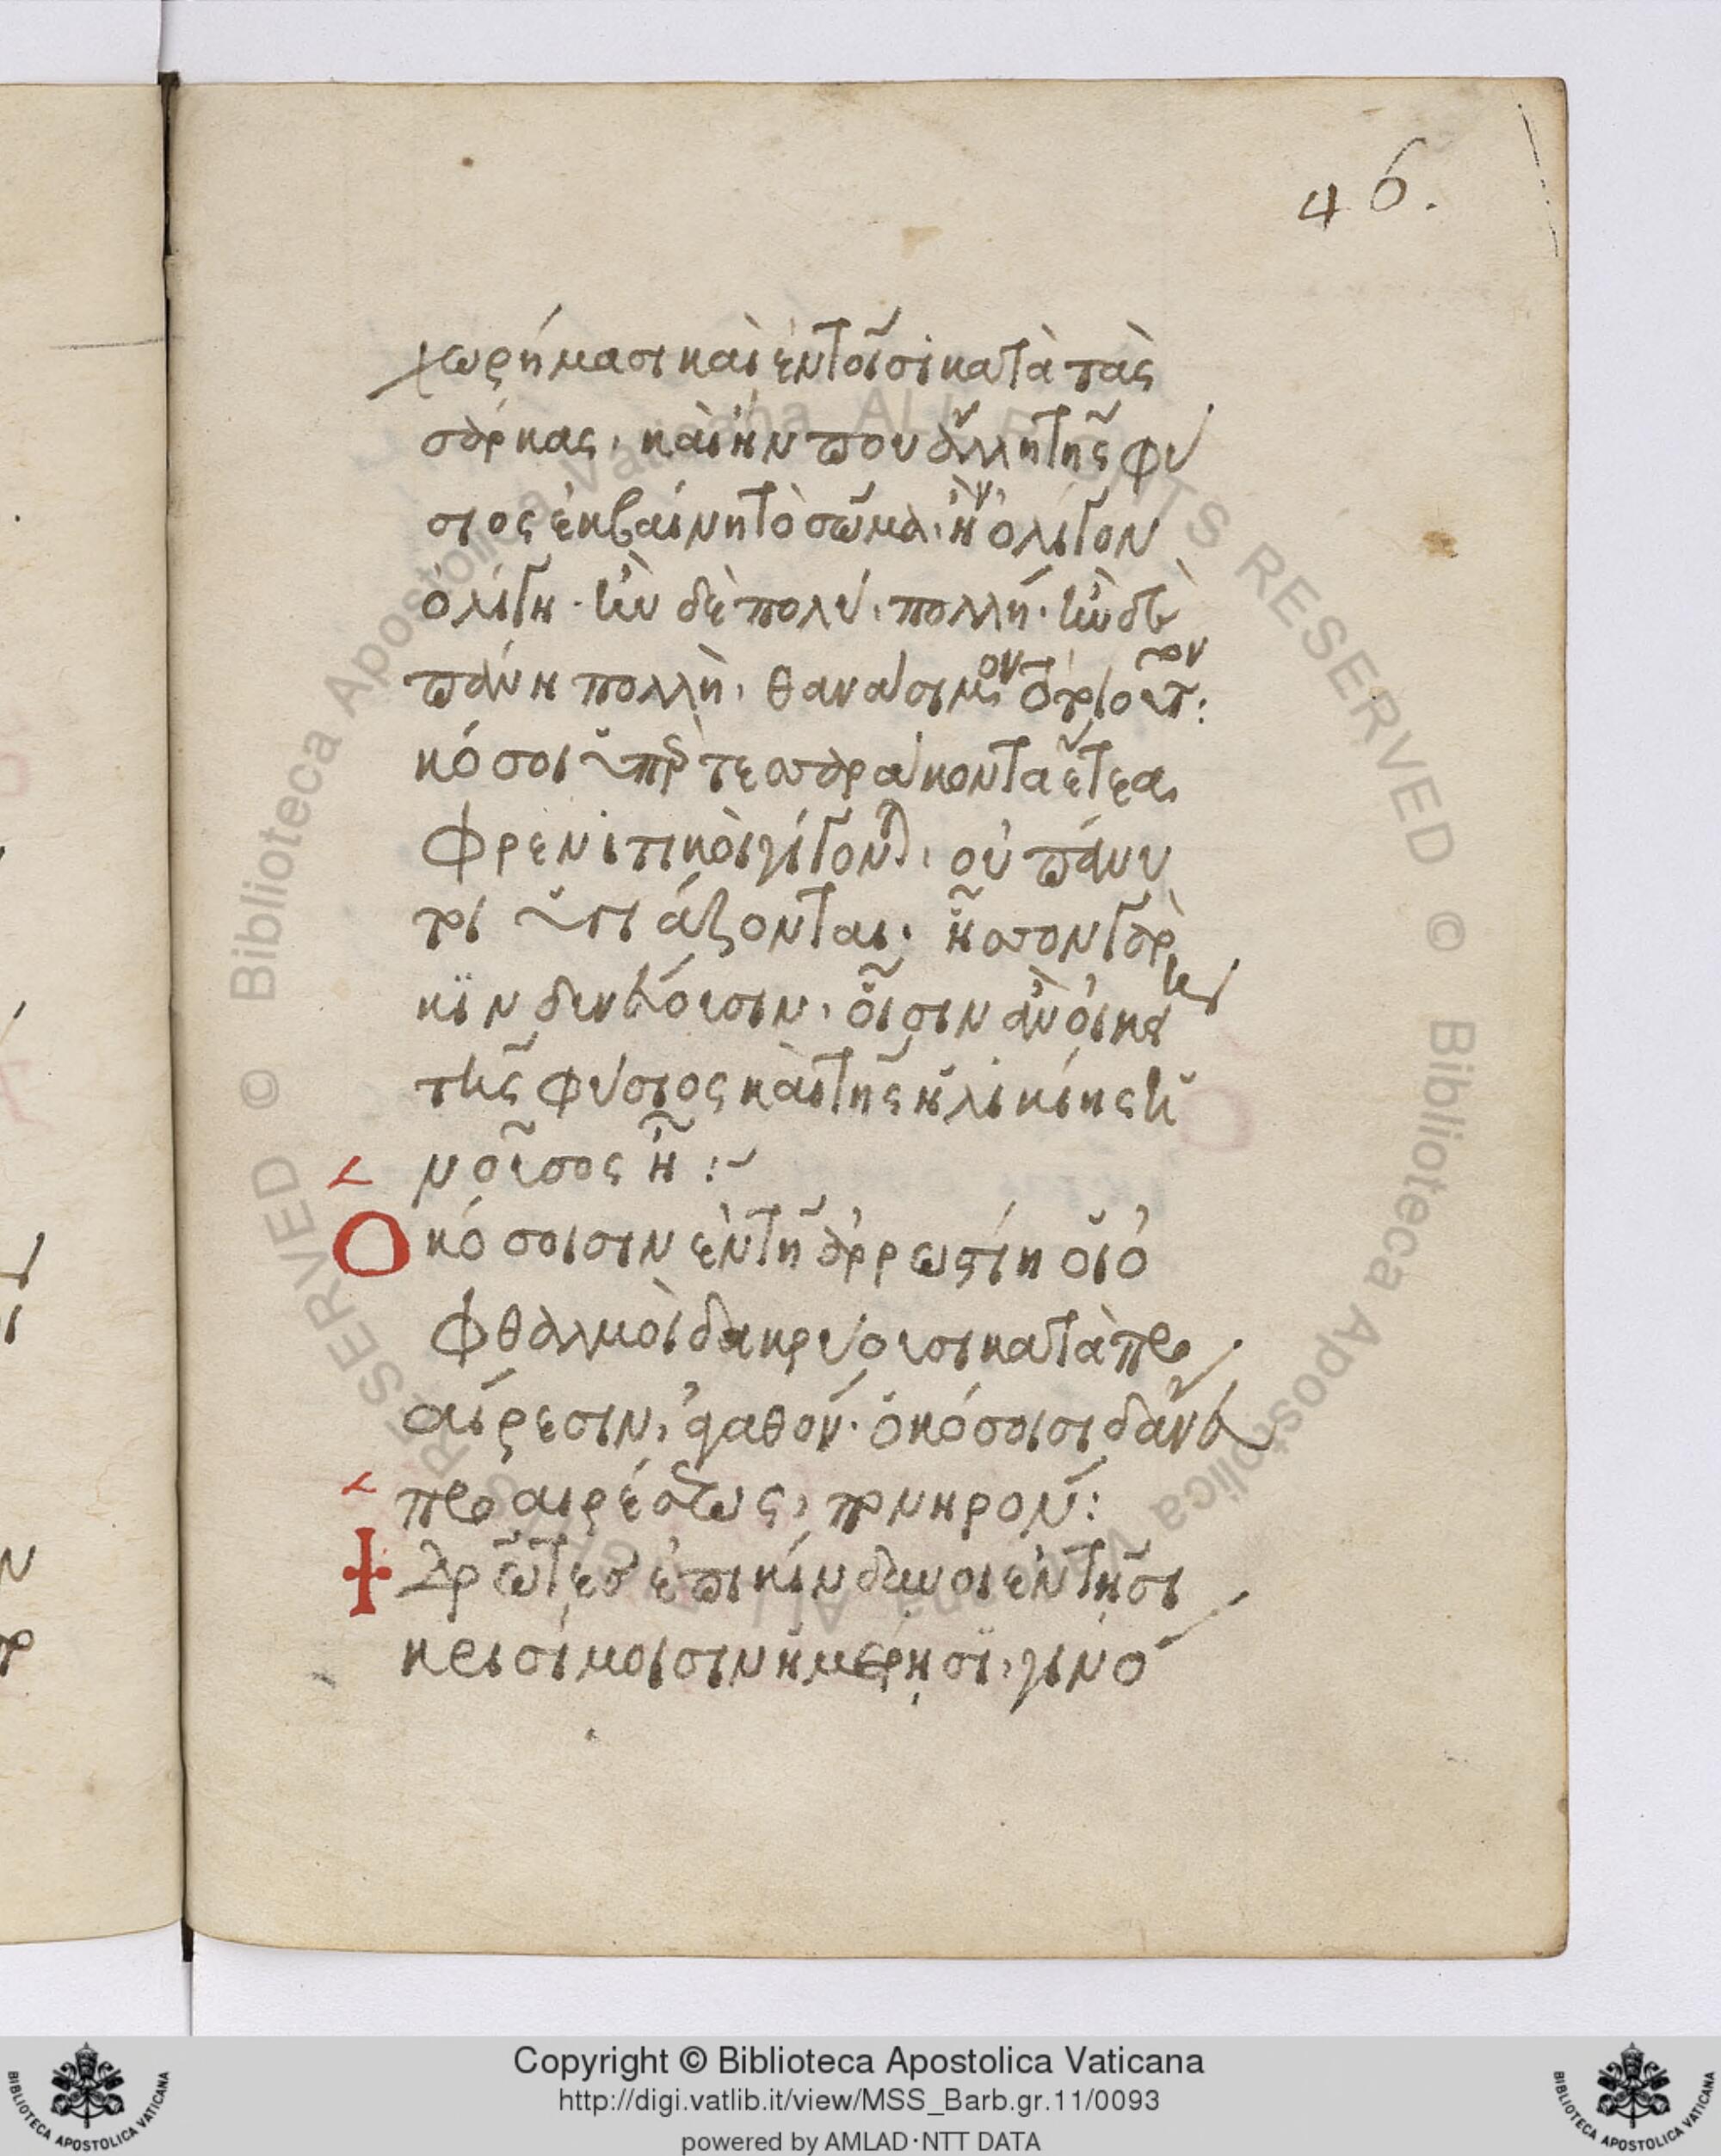 46.
χωρήμασι καὶ ἐν τοῖσι κατὰ τὰς
σάρκας, καὶ ἢν που ἄλλη τῆς φύ
σιος ἐκβαίνη τὸ σῶμα, ἢν ὀλίγον
ὀλίγη· ἢν δὲ πολύ, πολλή· ἢν δὲ
πάνυ πολλὴ, θανάσιμον τὸ τοιοῦτον:
κόσοι ὑπὲρ τεσσαράκοντα ἔτεα
φρενιτικοὶ γίγονται, οὐ πάνυ
τι ὑγιάζονται· ἧσσον γὰρ
κινδυνεύουσιν, οἷσιν ἂν οἰκείη
τῆς φύσιος καὶ τῆς ἡλικίης ἡ
νοῦσος ᾖ :~
Ὁκόσοισιν ἐν τῆ ἀρρωστίη οἱ ὀ
φθαλμοὶ δακρύουσι κατὰ προ
αίρεσιν, ἀγαθόν· ὁκόσοισι δ' ἄνευ
προαιρέσεως, πονηρόν:
ἱδρῶτες ἐπικίνδυνοι ἐν τῆσι
κρισίμοισιν ἡμέρησι, γινό
Copyright © Biblioteca Apostolica Vaticana
http://digi.vatlib.it/view/MSS_Barb.gr.11/0093
powered by AMLAD·NTT DATA
BIBLIOTECA APOSTOLICA VATICANA
BIBLIOTECA APOSTOLICA VATICANA
© Biblioteca Apostolica Vaticana ALL RIGHTS RESERVED
© Biblioteca Apostolica Vaticana ALL RIGHTS RESERVED